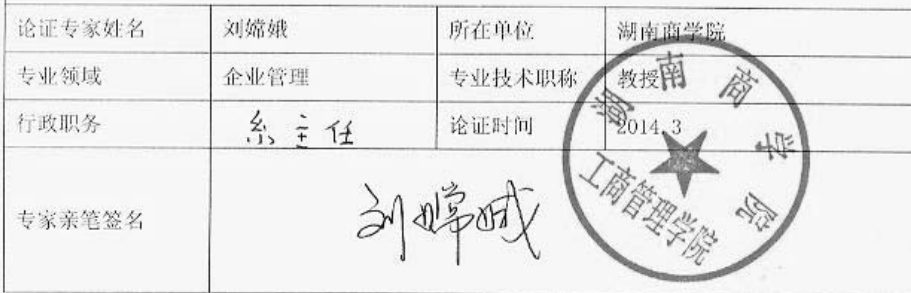 论证专家姓名 刘嫦娥 所在单位 湖南商学院
专业领域 企业管理 专业技术职称 教授
行政职务 系主任 论证时间 2014.3
专家亲笔签名 刘嫦娥
湖南商学院
工商管理学院